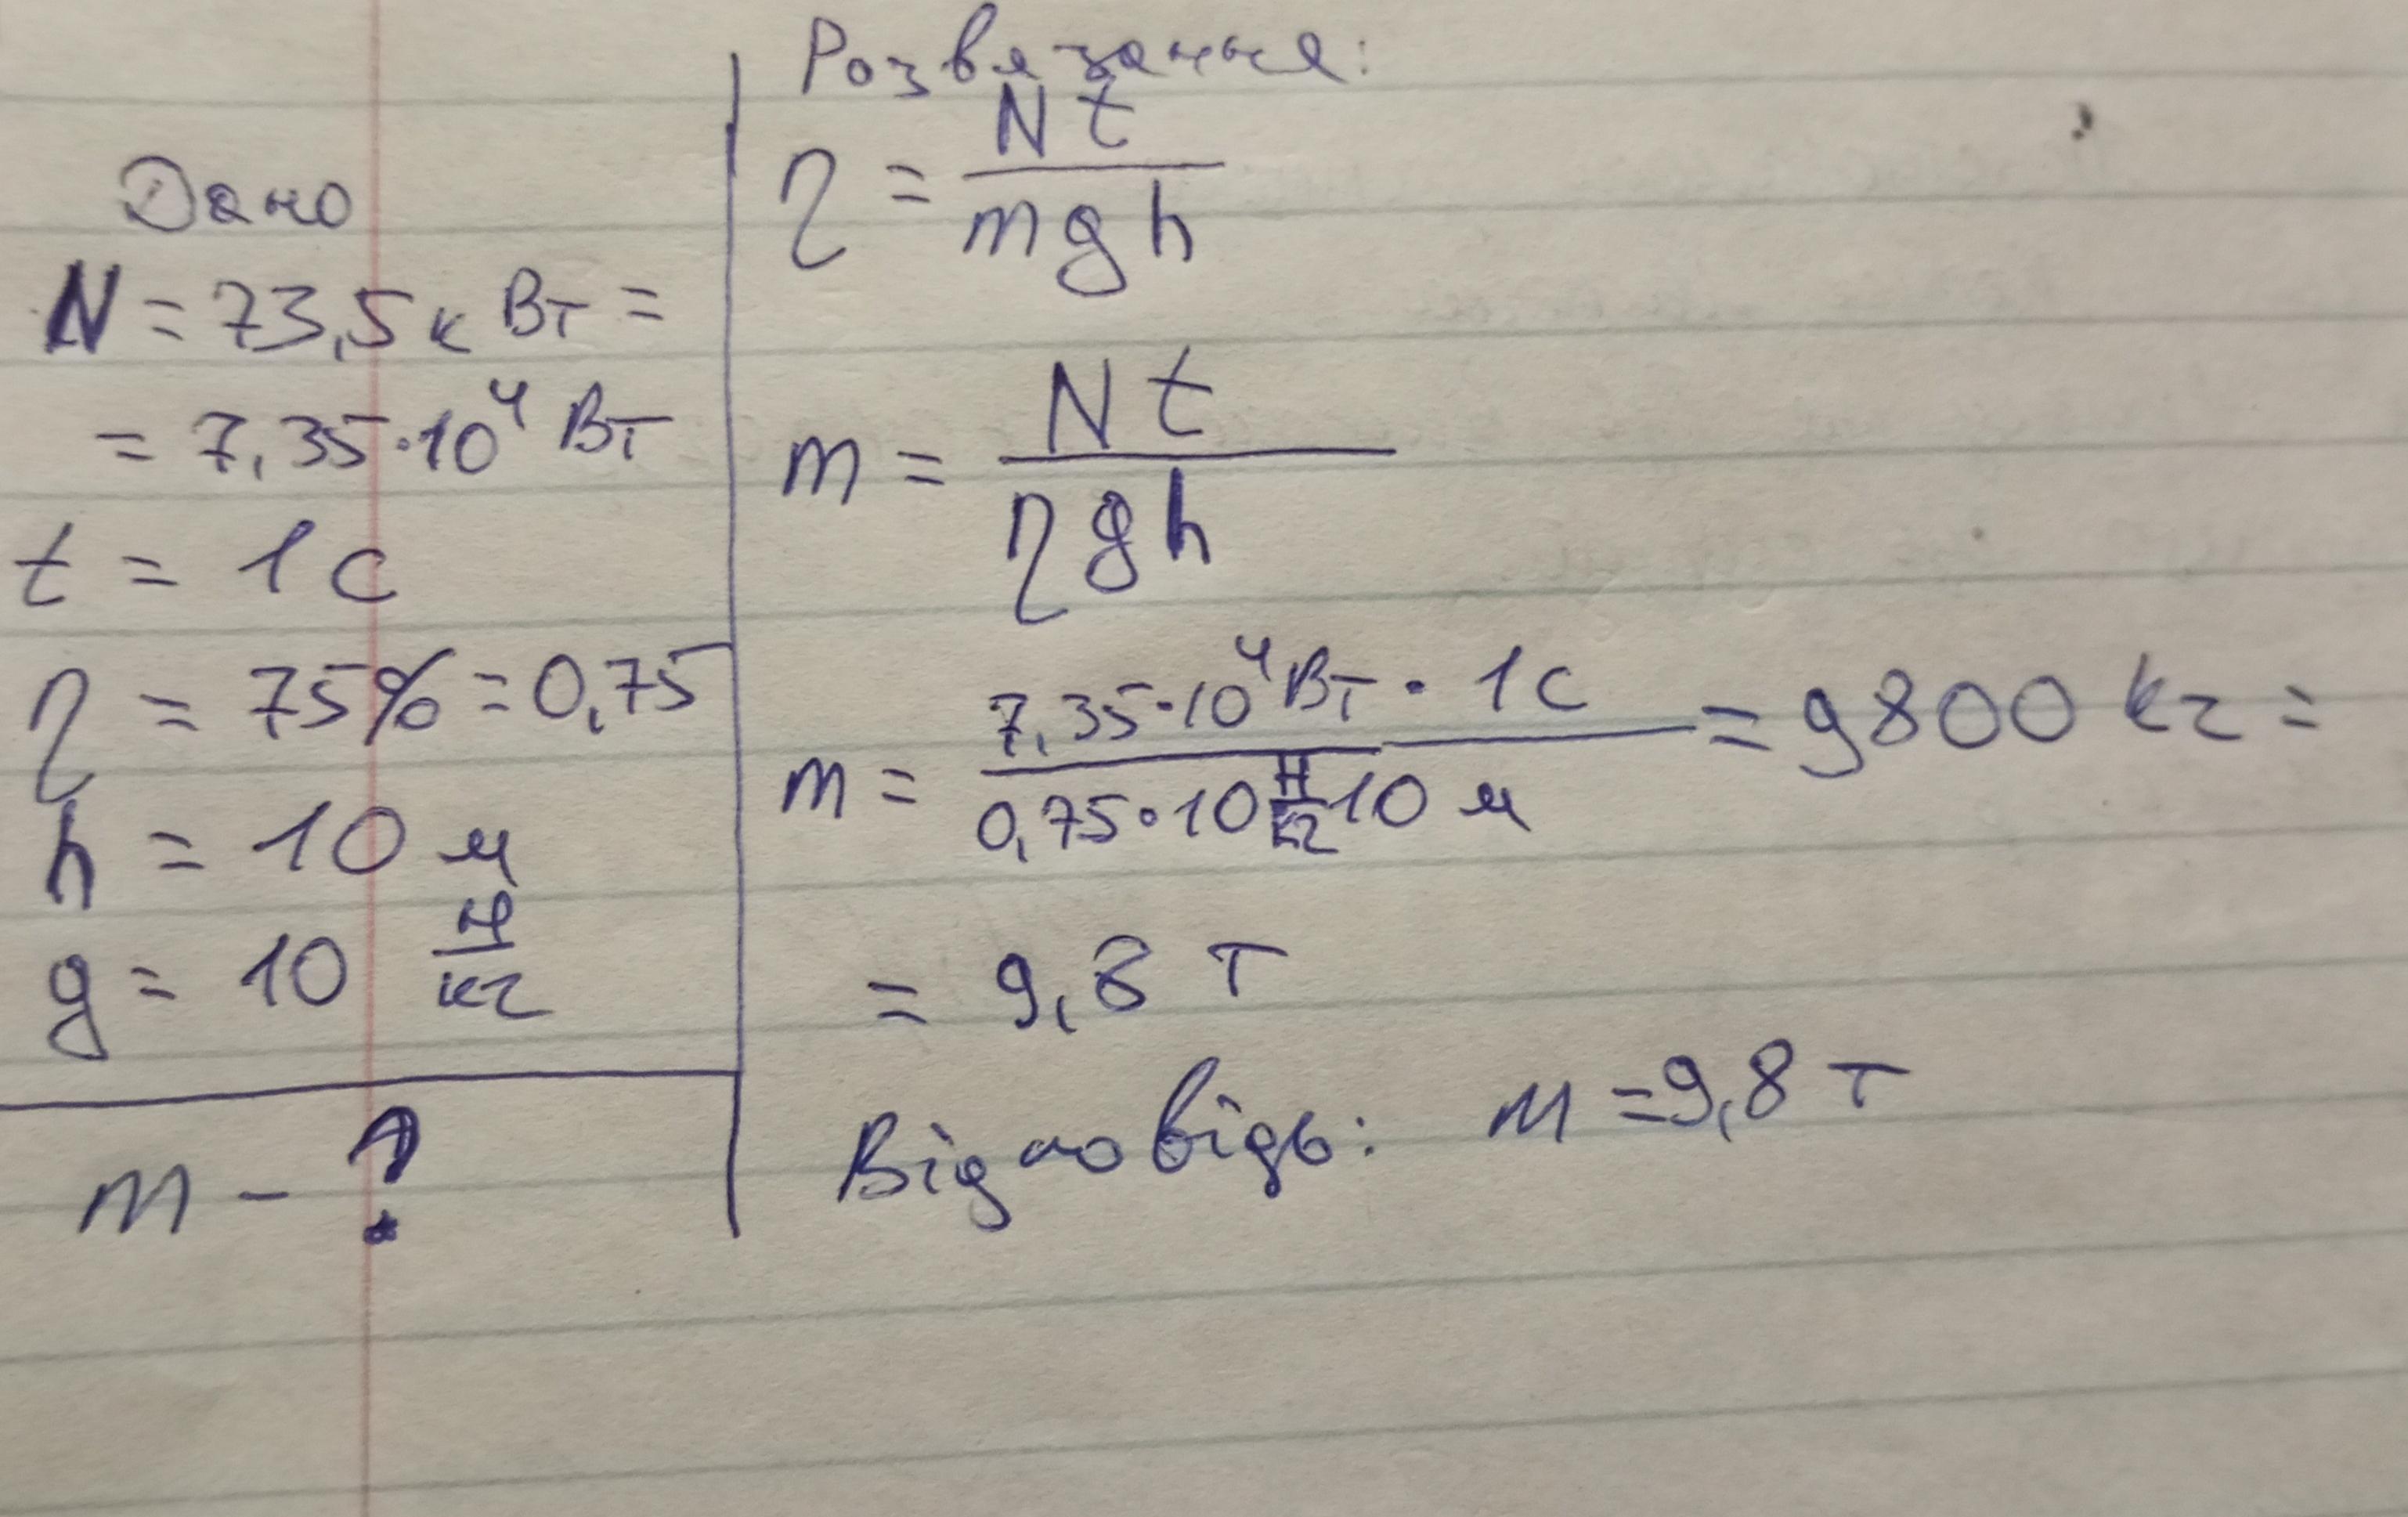 Дано
N = 73,5 кВт =
= 7,35·10⁴ Вт
t = 1 с
η = 75% = 0,75
h = 10 м
g = 10 Н/кг
m - ?
Розвязання:
η = Nt/mgh
m = Nt/ηgh
m = 7,35·10⁴ Вт · 1 с/0,75·10 Н/кг 10 м = 9800 кг =
= 9,8 т
Відповідь: m = 9,8 т